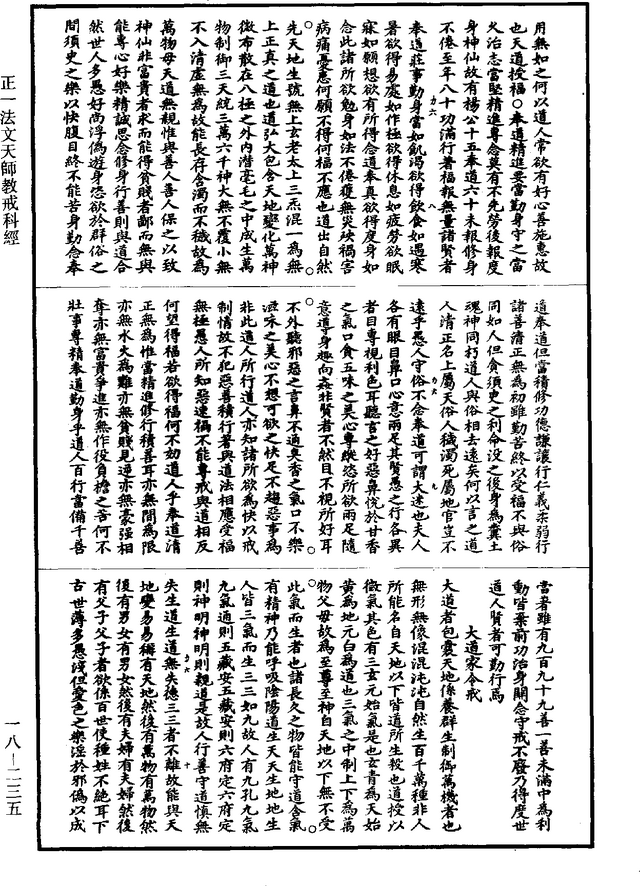 正一法文天師教戒科經
用無如之何以道人常欲有好心善施惠故
也天道授福○奉道精進要當勤身守之當
久治志當堅精進專念莫有不先勞後報度
身神仙故有楊公十五奉道六十未報修身
不倦至年八十功滿行著福報無量諸賢者
力六 八
奉道莊事勤身當如飢渴欲得飲食如遇寒
暑欲得易處如作極欲得休息如疲勞欲眠
寐如願想欲有所得念道奉真欲得度身如
念此諸所欲勉身如法不倦獲無災殃禍害
病痛憂恚何願不得何福不應也道出自然
先天地生號無上玄老太上三炁混一為無
上正真之道也道弘大包含天地變化萬神
微布散在八極之外內潛毫毛之中成生萬
物制御三天統三萬六千神大無不覆小無
不入清虛無為故能長存含濁而不穢故為
萬物母天道無親惟與善人善人保之以致
神仙非富貴者求而能得貧賤者鄙而無與
能專心好樂精誠思念修身行善則與道合
然世人多愚好尚浮偽遊身恣欲於群俗之
間須臾之樂以快腹目終不能苦身勤念奉
道奉道但當積修功德謙讓行仁義柔弱行
諸善清正無為初雖勤苦終以受福不與俗
同如人但貪須臾之利命沒之後身為糞土
魂神同拷道人與俗相去遠矣何以言之道
人清正名上屬天俗人穢濁死屬地官豈不
力六 九
遠乎愚人守俗不念奉道可謂大迷也夫人
各有眼目鼻口心意兩足其賢愚之行各異
者目專視利色耳聽言之好惡鼻悅於甘香
之氣口食五味之美心專縱恣所欲兩足隨
意導身趣向姦非賢者不然目不視所好耳
不外聽邪惡之言鼻不適臭香之氣口不樂
滋味之美心不想可欲之快足不趨惡事為
非此道人所行道人亦知諸所欲為快以戒
制情故不犯惡善積行著與道法相應受福
無極愚人所知惡速禍不能專戒與道相反
何望得福若欲得福何不効道人乎奉道清
正無為惟當精進修行積善耳亦無間為限
亦無水火為難亦無貧賤見逆亦無豪強相
奪亦無富貴爭進亦無作役負擔之苦何不
壯事專精奉道勤身乎道人百行當備千善
當著雖有九百九十九善一善未滿中為利
動皆棄前功治身關念守戒不廢乃得度世
道人賢者可勤行焉
大道家令戒
大道者包裹天地係養群生制御萬機者也
無形無像混混沌沌自然生百千萬種非人
所能名自天地以下皆道所生殺也道授以
微氣其色有三玄元始氣是也玄青為天始
黃為地元白為道也三氣之中制上下為萬
物父母故為至尊至神自天地以下無不受
此氣而生者也諸長久之物皆能守道含氣
有精神乃能呼吸陰陽道生天天生地地生
人皆三氣而生三三如九故人有九孔九氣
九氣通則五藏安五藏安則六府定六府定
則神明神明則親道是故人行善守道慎無
力六 十
失生道生道無失德三三者不離故能與天
地變易易稱有天地然後有萬物有萬物然
後有男女有男女然後有夫婦有夫婦然後
有父子父子者欲係百世使種姓不絕耳下
古世薄多愚淺但愛色之樂淫於邪偽以成
一八—二三五